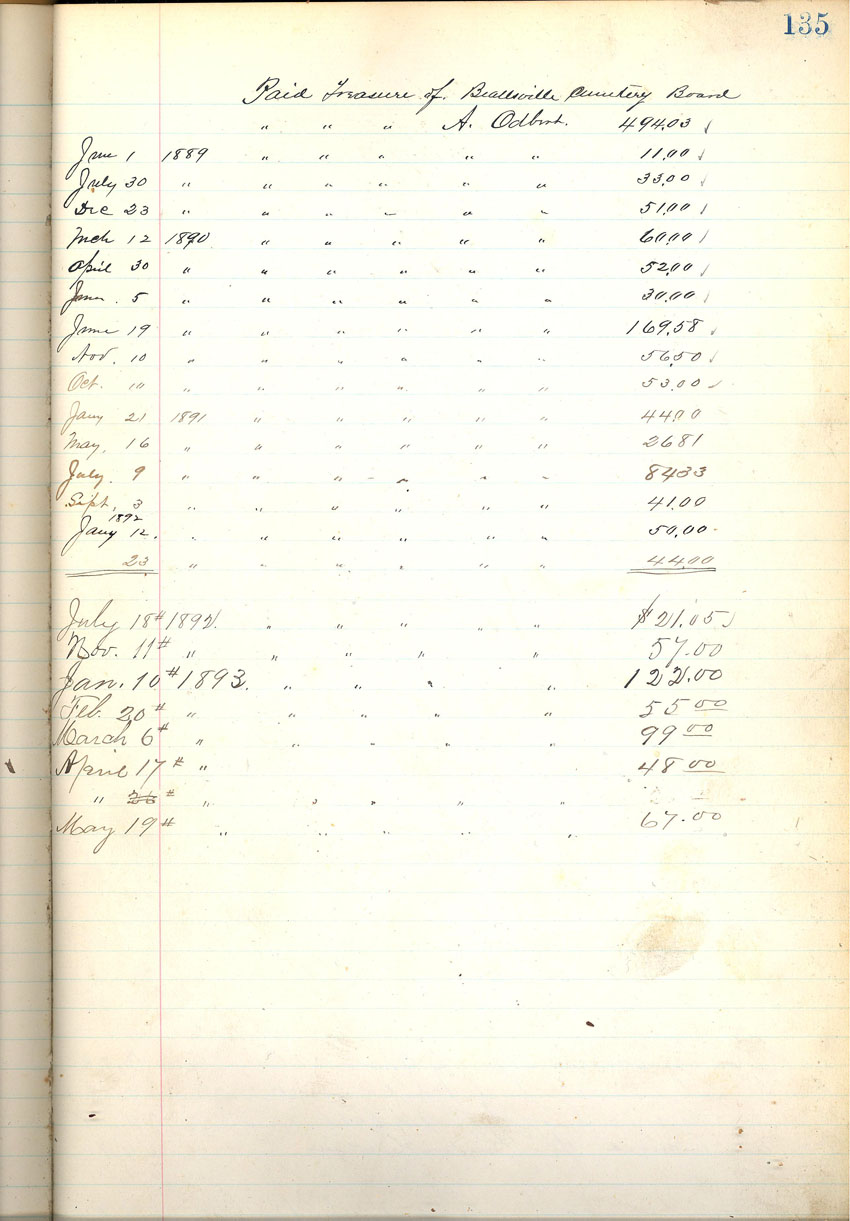 135
Paid Treasure of Beallsville Cemetery Board
" " " A. Odbert. 494.03 ✓
June 1 1889 " " " " " 11.00 ✓
July 30 " " " " " " 33.00 ✓
Dec 23 " " " " " " 51.00 ✓
Mch 12 1890 " " " " " 60.00 ✓
April 30 " " " " " " 52.00 ✓
June . 5 " " " " " " 30.00 ✓
June 19 " " " " " " 169.58 ✓
Nov. 10 " " " " " " 56.50 ✓
Oct. " " " " " " " 53.00 ✓
Jany 21 1891 " " " " " 44.00
May. 16 " " " " " " 26 81
July. 9 " " " " " " 84 33
Sept, 3 " " " " " " 41.00
1892
Jany 12. " " " " " " 50.00
23 " " " " " " 44.00
July 18th 1892. " " " " " $21.05 ✓
Nov. 11th " " " " " 57.00
Jan. 10th 1893. " " " " 122.00
Feb. 20th " " " " " 55 00
March 6th " " " " " 99 00
April 17th " 48 00
" 26th " " " " "
May 19th " " " " " 67.00